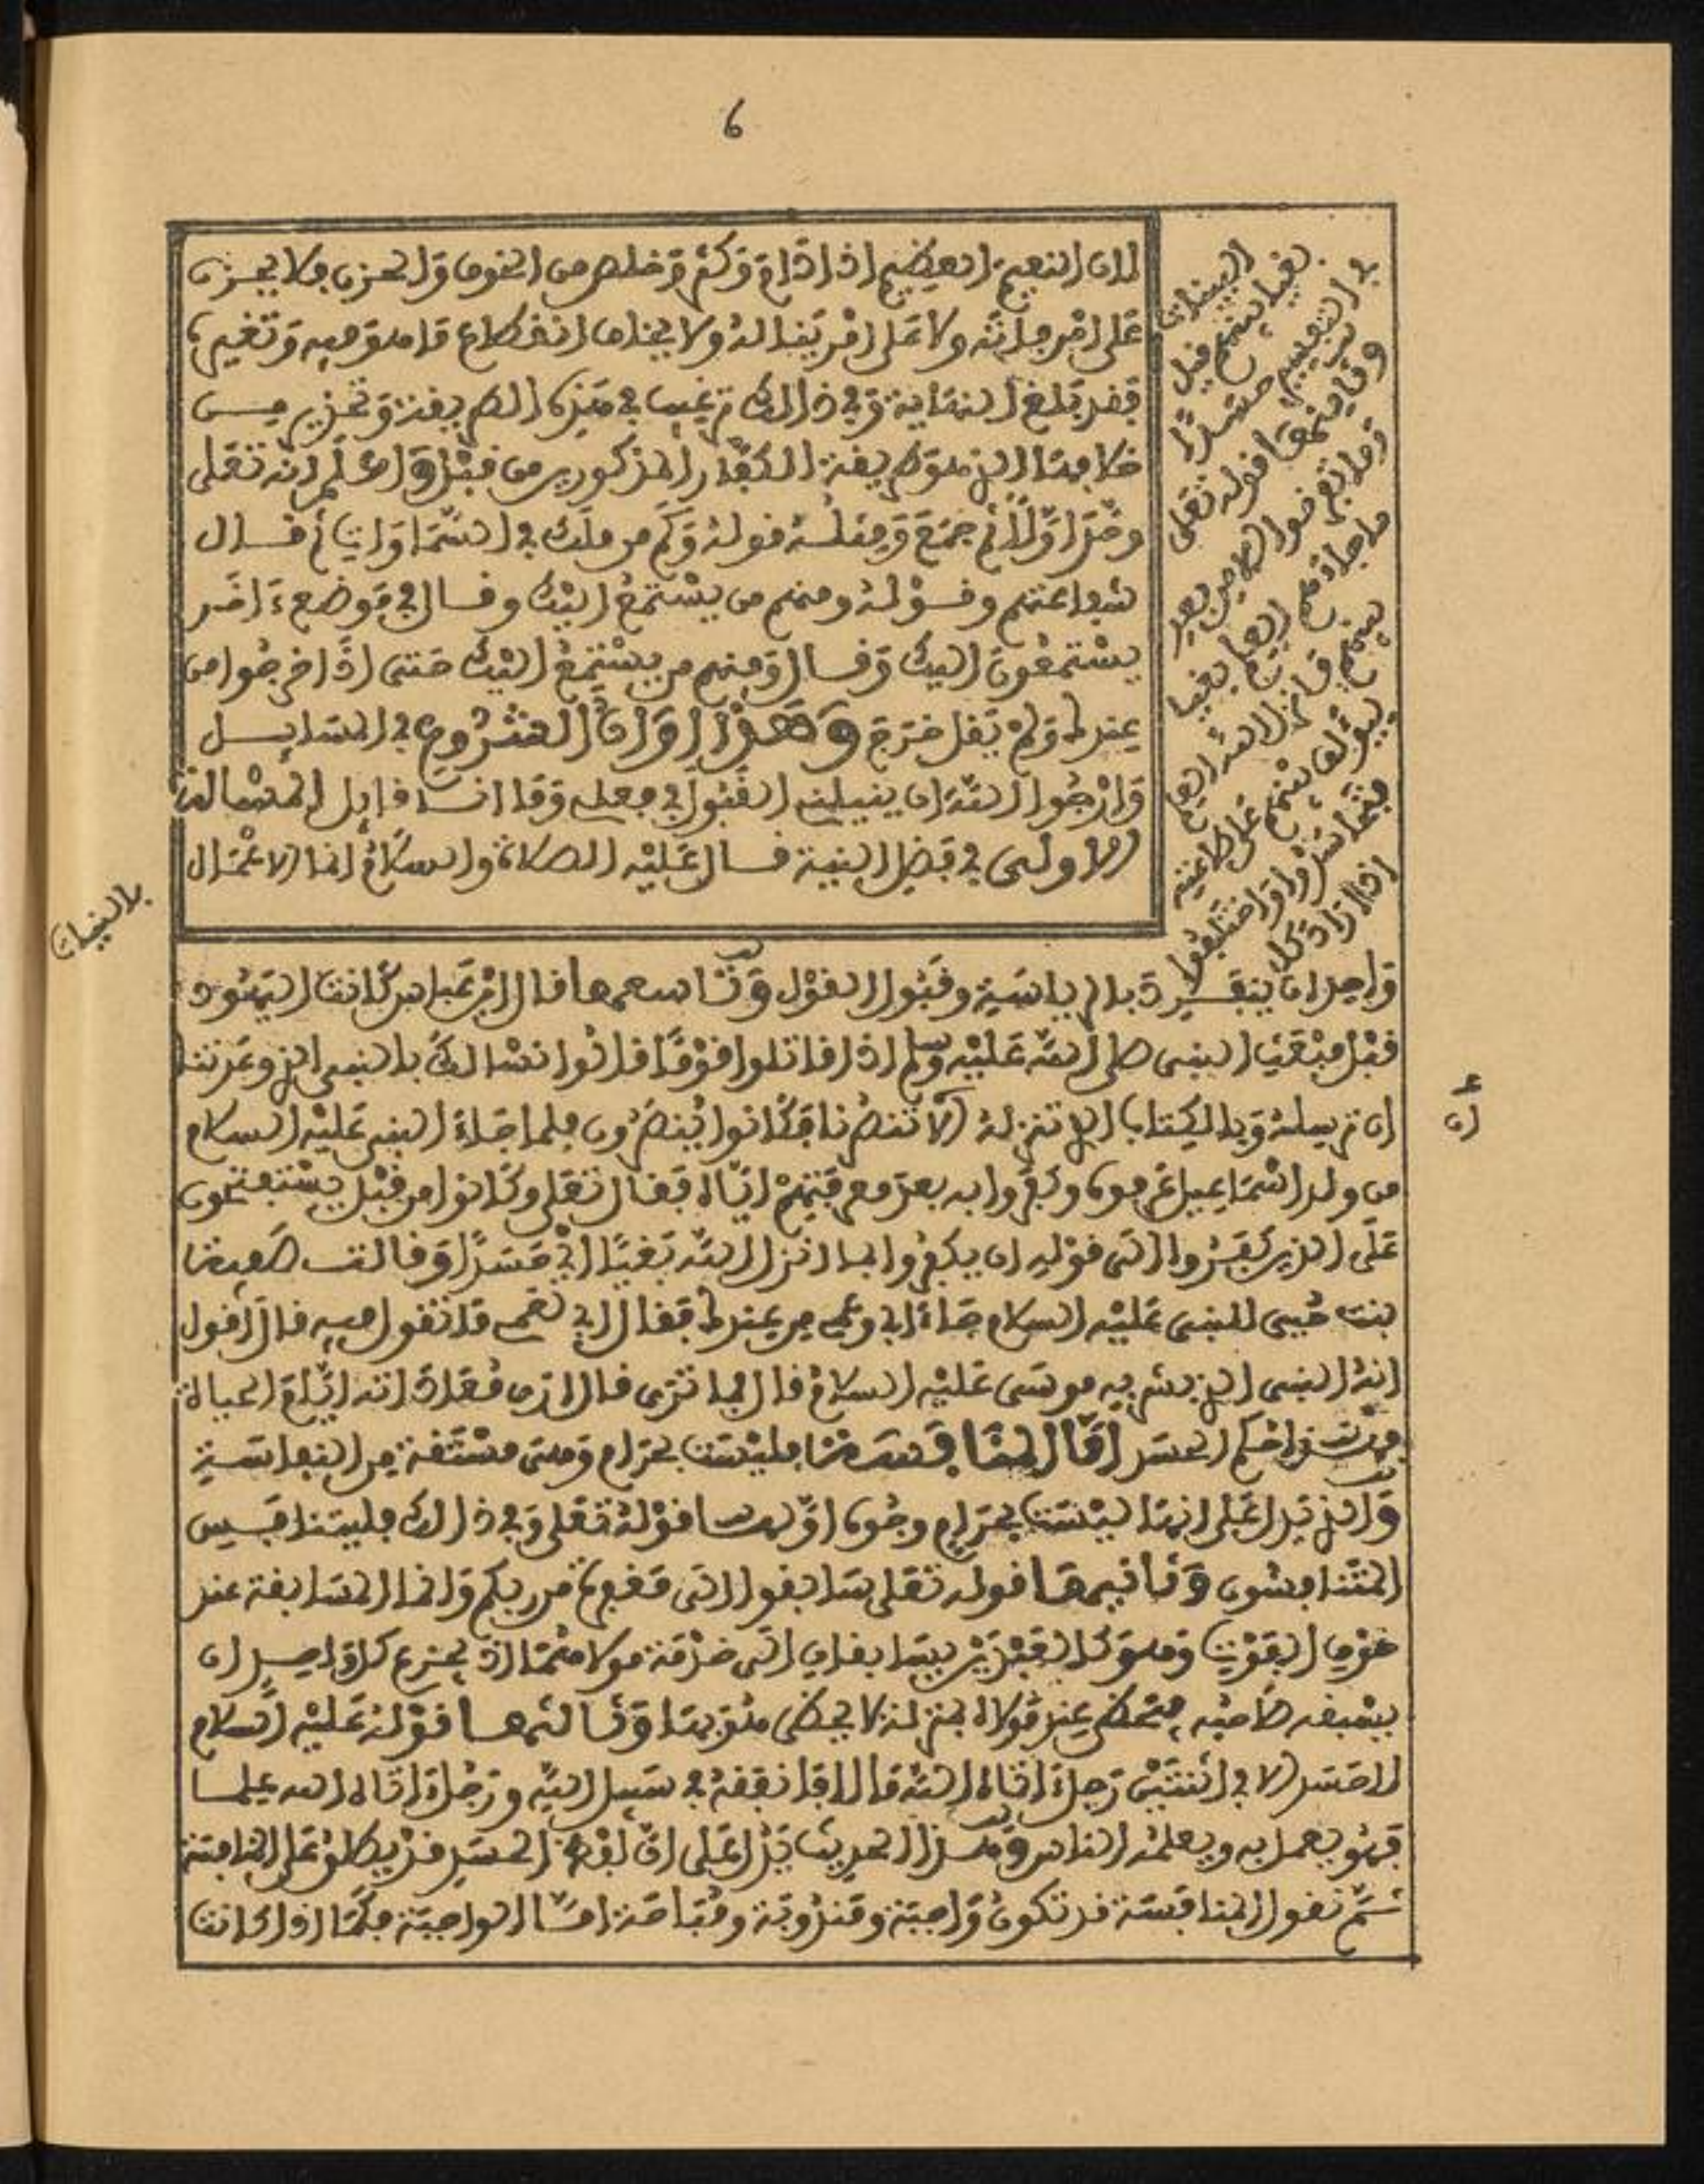 6
لان النعيم العظيم اذا دام وكثر وخلص من الخوف والحزن فلا يحزن
على امر فاته ولا على امر يناله ولا يخاف انقطاع ما هو فيه وتغييره
فقد بلغ النهاية وفي ذالك ترغيب في هذه الطريقة وتحذير من
خلافها الذي هو طريقة الكفار المذكورين من قبل واعلم انه تعلى
وحد اولا ثم جمع ومثله قوله وكم من ملك في السماوات ثم قال
شفاعتهم وقوله ومنهم من يستمع اليك وقال في موضع ءاخر
يستمعون اليك وقال ومنهم من يستمع اليك حتى اذا خرجوا من
عندك ولم يقل خرج وهذا اوان الشروع في المسايل
وارجوا الله ان ينيلنه القبول في فعله وما انا قايل المسالة
الاولى في فضل النية قال عليه الصلاة والسلام انما الاعمال
بالنيات
البينات
بغيا بينهم قيل
في التفسير حسدا
ومنها قوله تعلى
وما تفرقوا الا من بعد
ما جاءهم العلم بغيا
بينهم فانزل الله العلم
ليولف بينهم على طاعته
فتحاسدوا واختلفوا
اذ اراد كل
واحد ان ينفرد بالرياسة وقبول القول وتاسعها قال ابن عباس كانت اليهود
قبل مبعث النبي صلى الله عليه وسلم اذا قاتلوا قوما قالوا نسالك بالنبي الذي وعدتنا
ان ترسله وبالكتاب الذي تنزله الا تنصرنا فكانوا ينصرون فلما جاء النبي عليه السلام
من ولد اسماعيل عرفوه وكفروا به بعد معرفتهم اياه فقال تعلى وكانوا من قبل يستفتحون
على الذين كفروا الى قوله ان يكفروا بما انزل الله بغيا اي حسدا وقالت صفية
بنت حيي للنبي عليه السلام جاء ابي وعمي من عندك فقال ابي لعمي ما تقول فيه قال اقول
انه النبي الذي بشر به موسى عليه السلام قال فما ترى قال ارى معاداته ايام الحياة
فهذا حكم الحسد اما المنافسة فليست بحرام وهي مشتقة من النفاسة
والذي يدل على انها ليست بحرام وجوه اولها قوله تعلى وفي ذالك فليتنافس
المتنافسون وثانيها قوله تعلى سابقوا الى مغفرة من ربكم وانما المسابقة عند
خوف الفوت وهو كالعبدين يتسابقان الى خدمة مولاهما اذ يجزع كل واحد ان
يسبقه صاحبه فيحظى عند مولاه بمنزلة لا يحظى هو بها وثالثها قوله عليه السلام
لا حسد الا في اثنتين رجل اتاه الله مالا فانفقه في سبيل الله ورجل اتاه الله علما
فهو يعمل به ويعلمه الناس وهذا الحديث يدل على ان لفظ الحسد قد يطلق على المنافسة
ثم نقول المنافسة قد تكون واجبة ومندوبة ومباحة اما الواجبة فكما اذا كانت